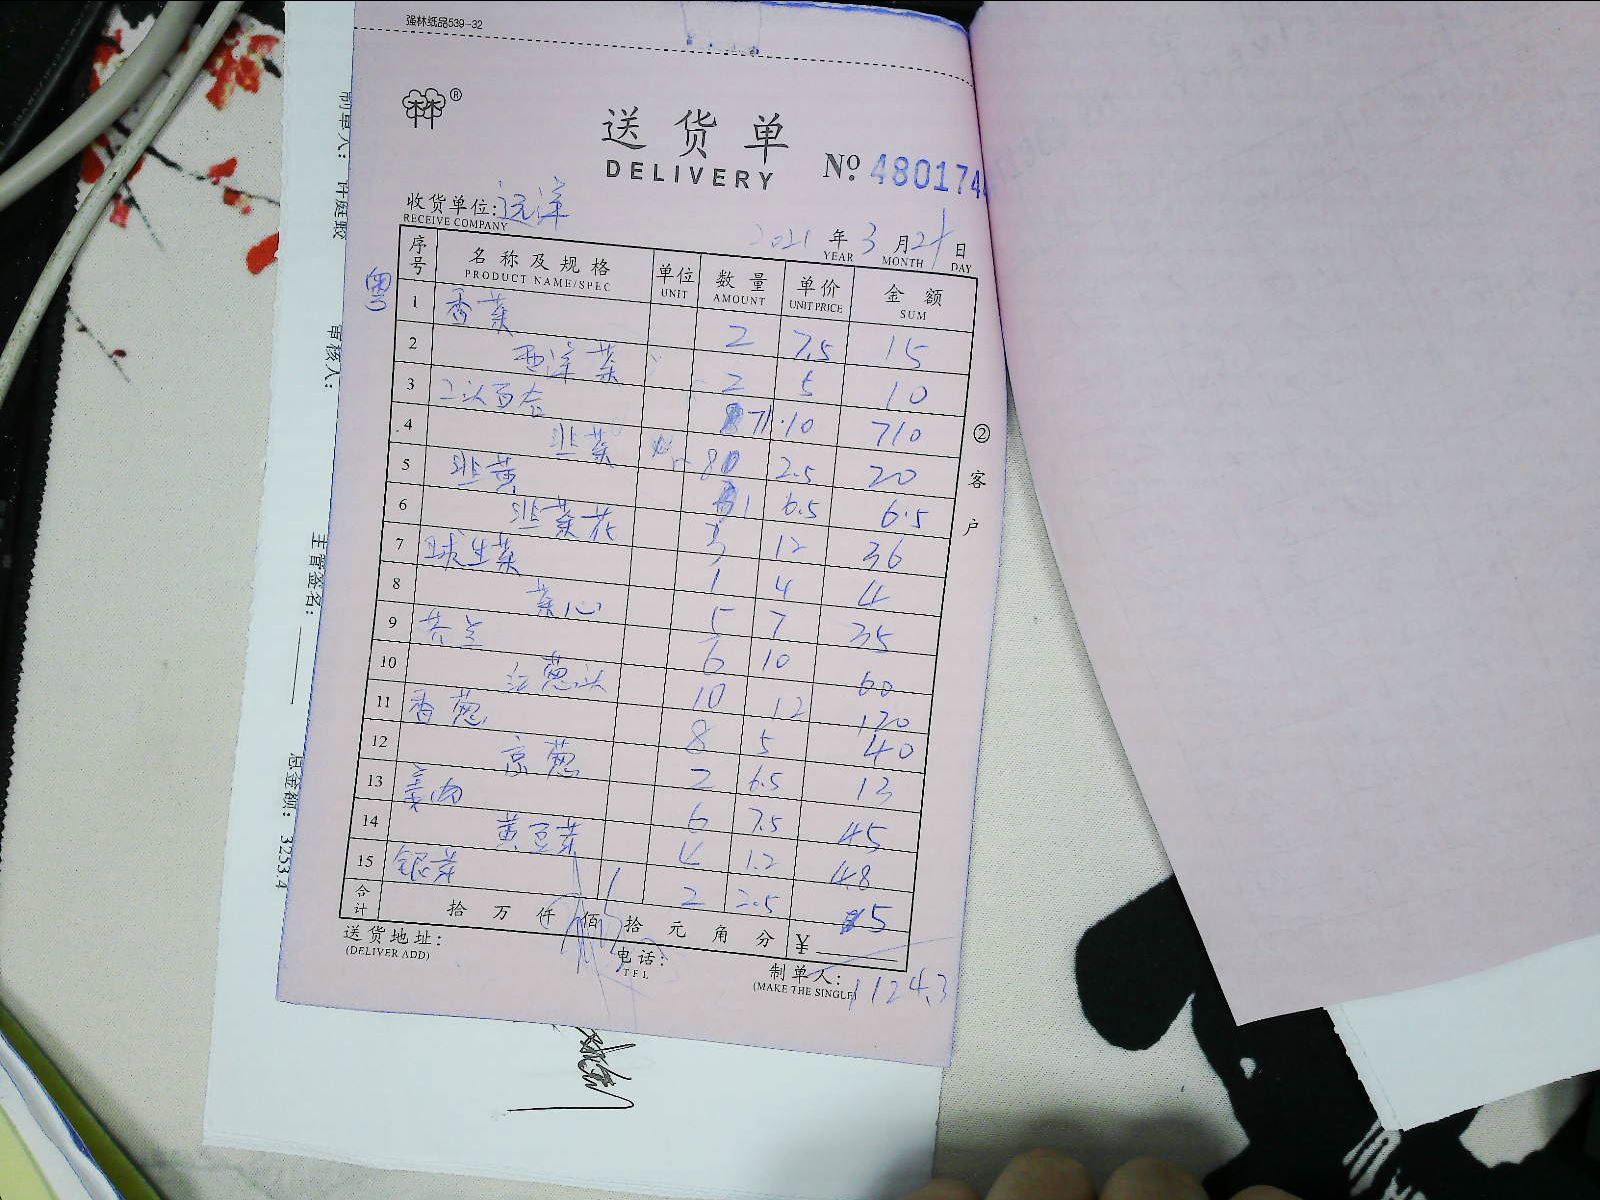 强林纸品539-32
送货单
DELIVERY
№ 480174
收货单位: 远洋
RECEIVE COMPANY
2021 年 3 月 21 日
YEAR MONTH DAY
粤
序号 名称及规格 单位 数量 单价 金额
PRODUCT NAME/SPEC UNIT AMOUNT UNIT PRICE SUM
1 香菜 2 7.5 15
2 西洋菜 2 5 10
3 百合 71 10 710
4 韭菜 8 2.5 20
5 韭黄 1 6.5 6.5
6 韭菜花 3 12 36
7 球生菜 1 4 4
8 菜心 5 7 35
9 芥兰 6 10 60
10 红葱头 10 12 120
11 香葱 8 5 40
12 京葱 2 6.5 13
13 姜肉 6 7.5 45
14 黄豆芽 4 1.2 4.8
15 银芽 2 2.5 5
合计 拾 万 仟 佰 拾 元 角 分 ¥
1124.3
送货地址: 电话: 制单人:
(DELIVER ADD) TEL (MAKE THE SINGLE)
② 客户
制单人: 许庭毅
审核人:
主管签名:
总金额: 3253.4